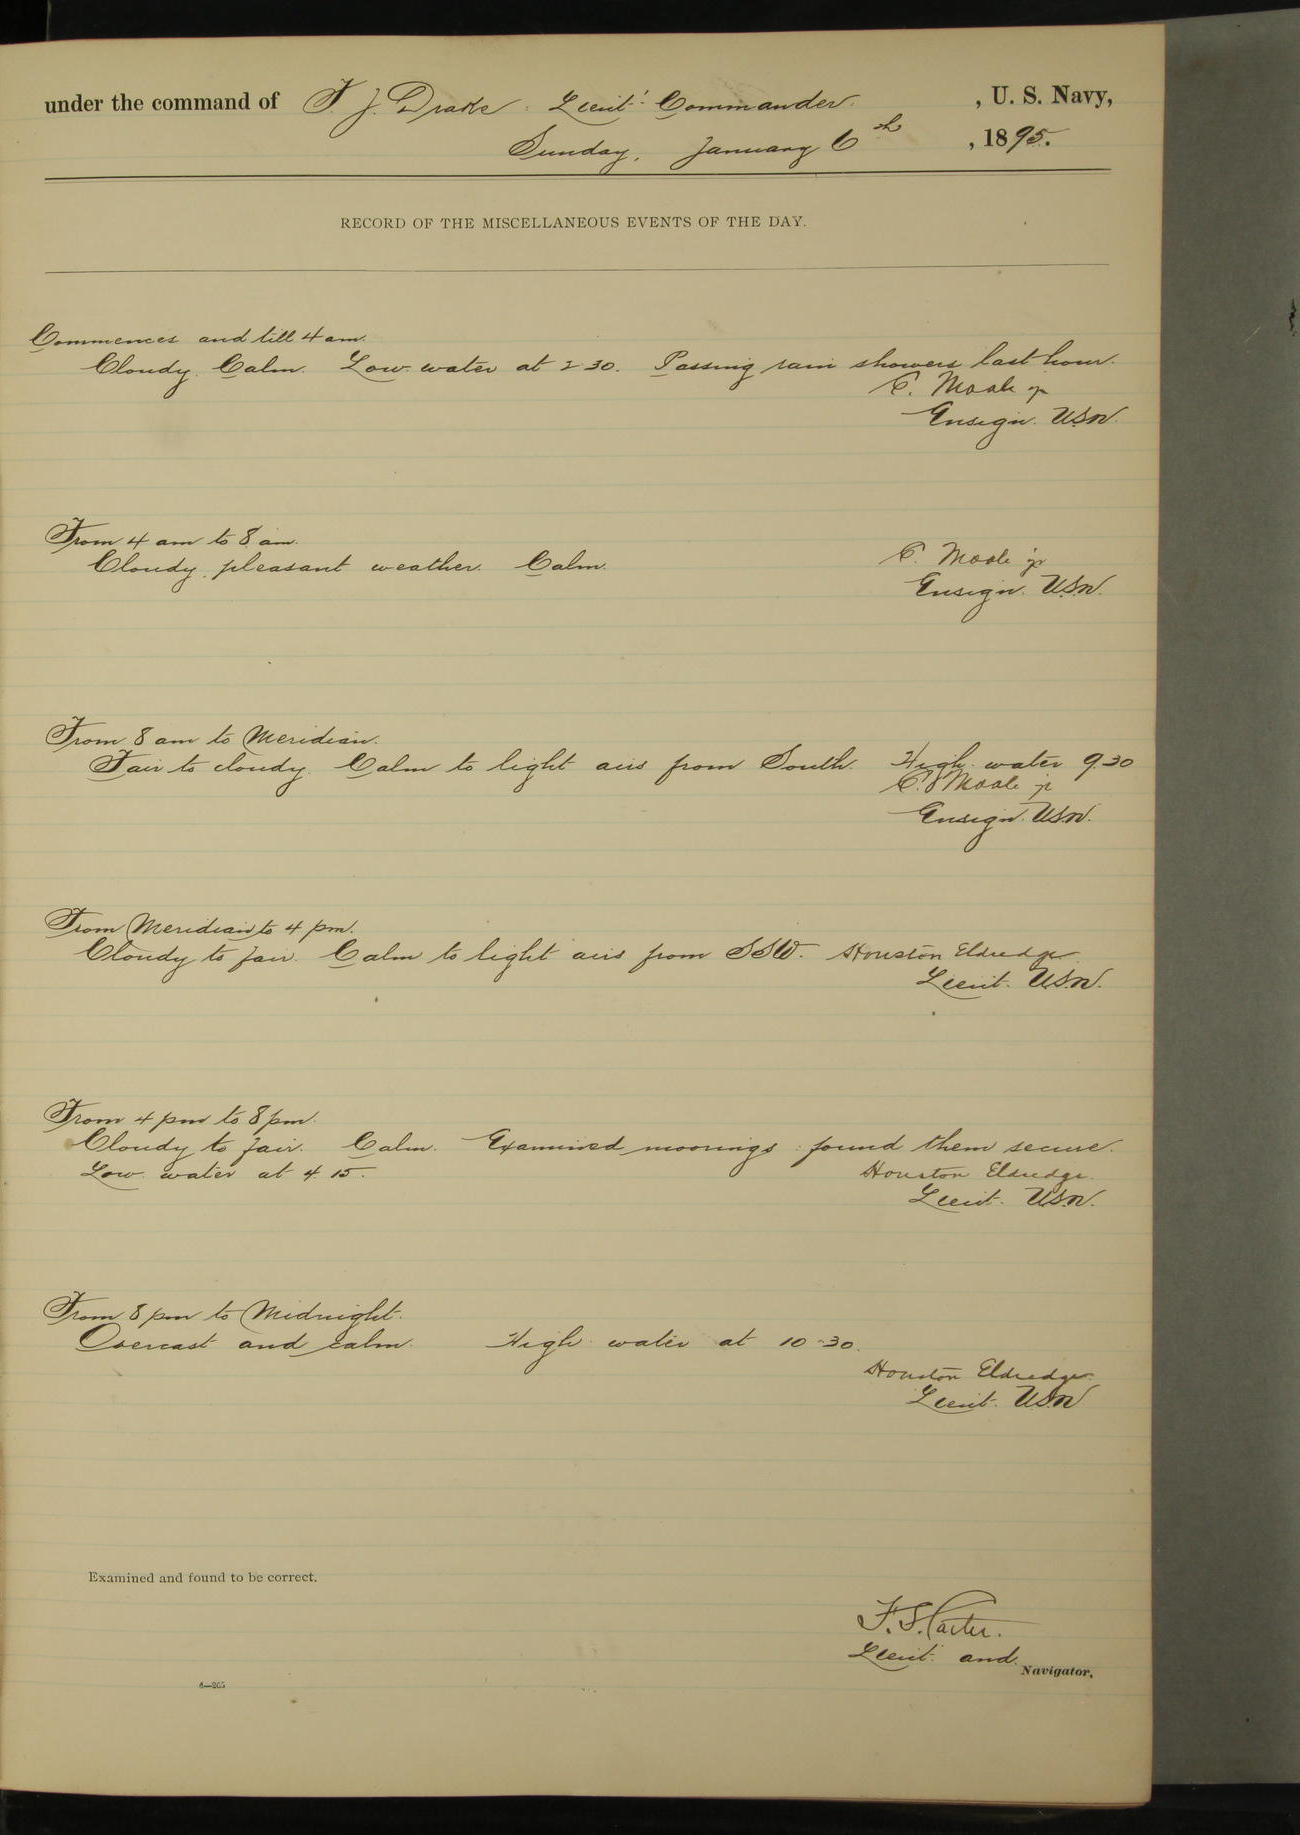 under the command of F. J. Drake. Lieut. Commander. , U. S. Navy,
Sunday, January 6th , 1895.
RECORD OF THE MISCELLANEOUS EVENTS OF THE DAY.
Commences and till 4 am.
Cloudy. Calm. Low water at 2 30. Passing rain showers last hour.
E. Moale jr
Ensign. U.S.N.
From 4 am to 8 am.
Cloudy, pleasant weather. Calm.
E. Moale jr
Ensign. U.S.N.
From 8 am to Meridian.
Fair to cloudy. Calm to light airs from South. High water 9.30
E. Moale jr
Ensign. U.S.N.
From Meridian to 4 pm.
Cloudy to fair. Calm to light airs from SSW. Houston Eldredge
Lieut. U.S.N.
From 4 pm to 8 pm.
Cloudy to fair. Calm. Examined moorings found them secure.
Low water at 4.15.
Houston Eldredge.
Lieut. U.S.N.
From 8 pm to Midnight.
Overcast and calm. High water at 10-30.
Houston Eldredge.
Lieut. U.S.N
Examined and found to be correct.
F. S. Carter.
Lieut. and Navigator.
6—205